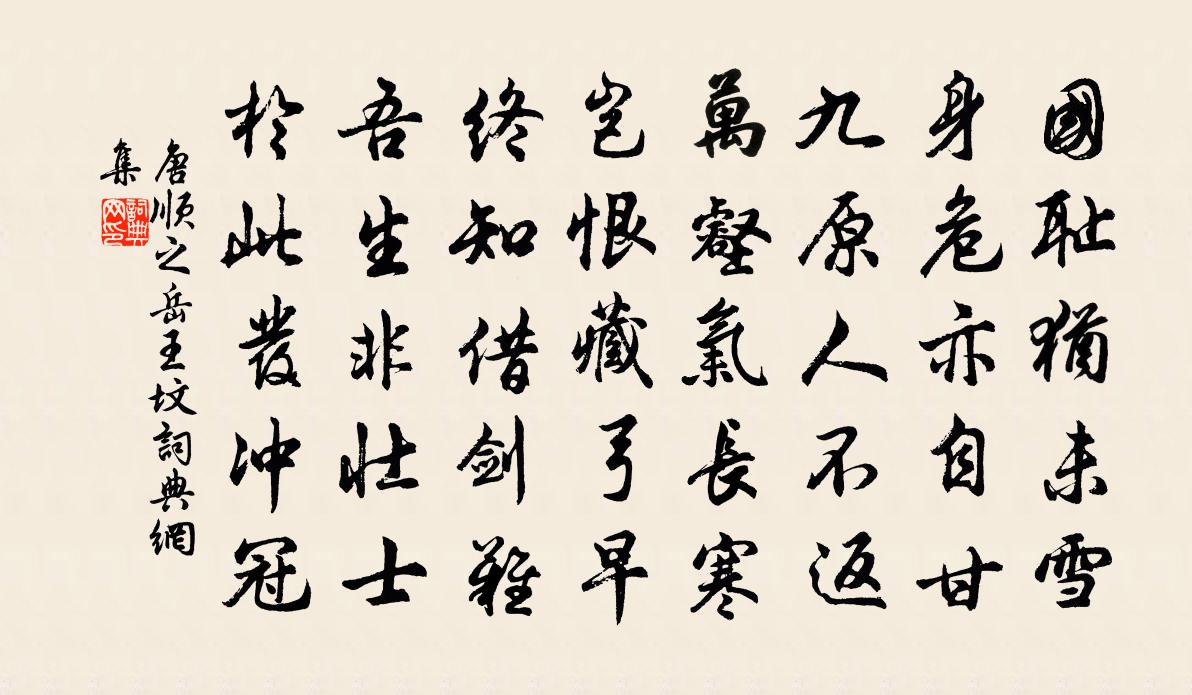 國耻猶未雪
身危亦自甘
九原人不返
萬壑氣長寒
岂恨藏弓早
终知借劍難
吾生非壮士
於此發冲冠
唐順之岳王坟詞典網
集
詞典
网印